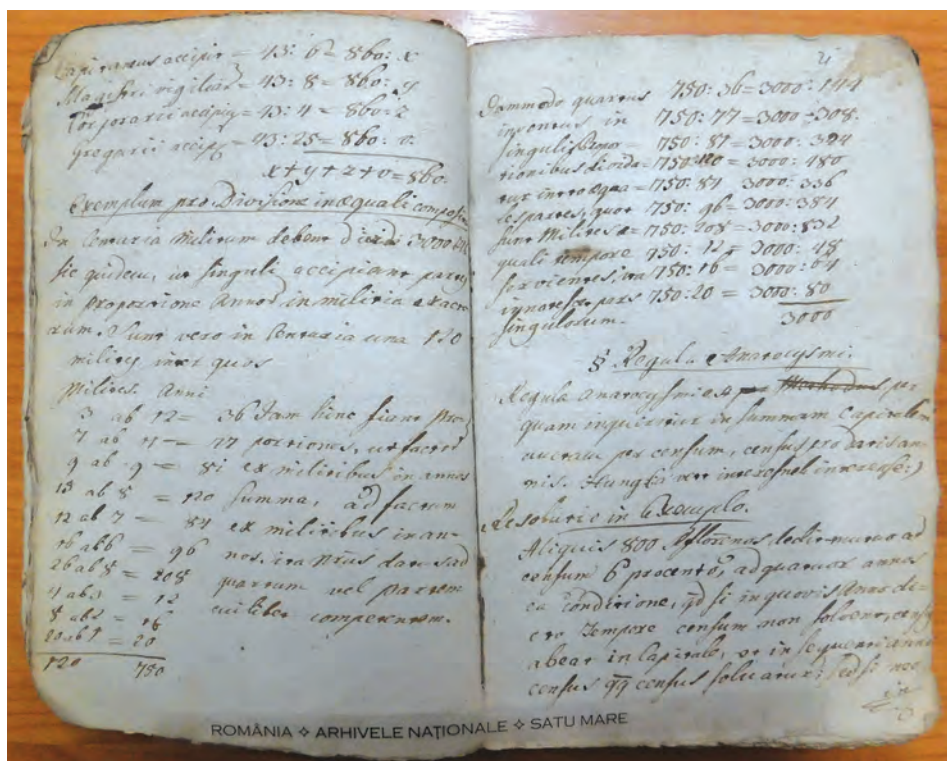 Capitaneus accipit = 43: 6 = 860: x
Magistri vigiliar = 43: 8 = 860: y
43: 4 = 860: z
Gregarii accip = 43: 25 = 860: v.
x + y + z + v = 860.
Exemplum pro Divisione inæquali composita
Centuria Militum debent dividi 3000
sic quidem, ut singuli accipiant partes
in proportione Annor in militia exacto
rum. Sunt vero in Centuria una 120
milites inter quos
Milites. Anni
3 ab 12 = 36 Jam hinc fiant pro
7 ab 11 = 77 portiones, ut factum
9 ab 9 = 81 ex militibus in annos
15 ab 8 = 120 summa, ad factum
12 ab 7 = 84 ex militibus in an-
16 ab 6 = 96 nos, ita
26 ab 8 = 208 vel partem
4 ab 3 = 12 cuilibet competentem.
8 ab 2 = 16
20 ab 1 = 20
120 750
21
quotus 750: 36 = 3000: 144
in 750: 77 = 3000: 308.
singulis Propor 750: 81 = 3000: 324
tionibus divida 750: 120 = 3000: 480
tur in 750: 84 = 3000: 336
les partes, quot 750: 96 = 3000: 384
sunt Milites 750: 208 = 3000: 832
quali tempore 750: 12 = 3000: 48
servientes, ita 750: 16 = 3000: 64
pars 750: 20 = 3000: 80
singulorum. 3000
§ Regula Anatocysmi.
Regula anatocysmi est per
quam inquiritur in summam Capitalem
auctam per censum, census pro datis an-
nis. interes)
Resolutio in Exemplo.
Aliquis 800 florenos dedit mutuo ad
censum 6 procento, ad quatuor annos
ea Conditione, qd si in quovis Anno di-
cto Tempore censum non solveret, census
abeat in Capitale, et in sequenti anno
census qq census solvatur; sed si nec
in
ROMÂNIA ❖ ARHIVELE NAȚIONALE ❖ SATU MARE